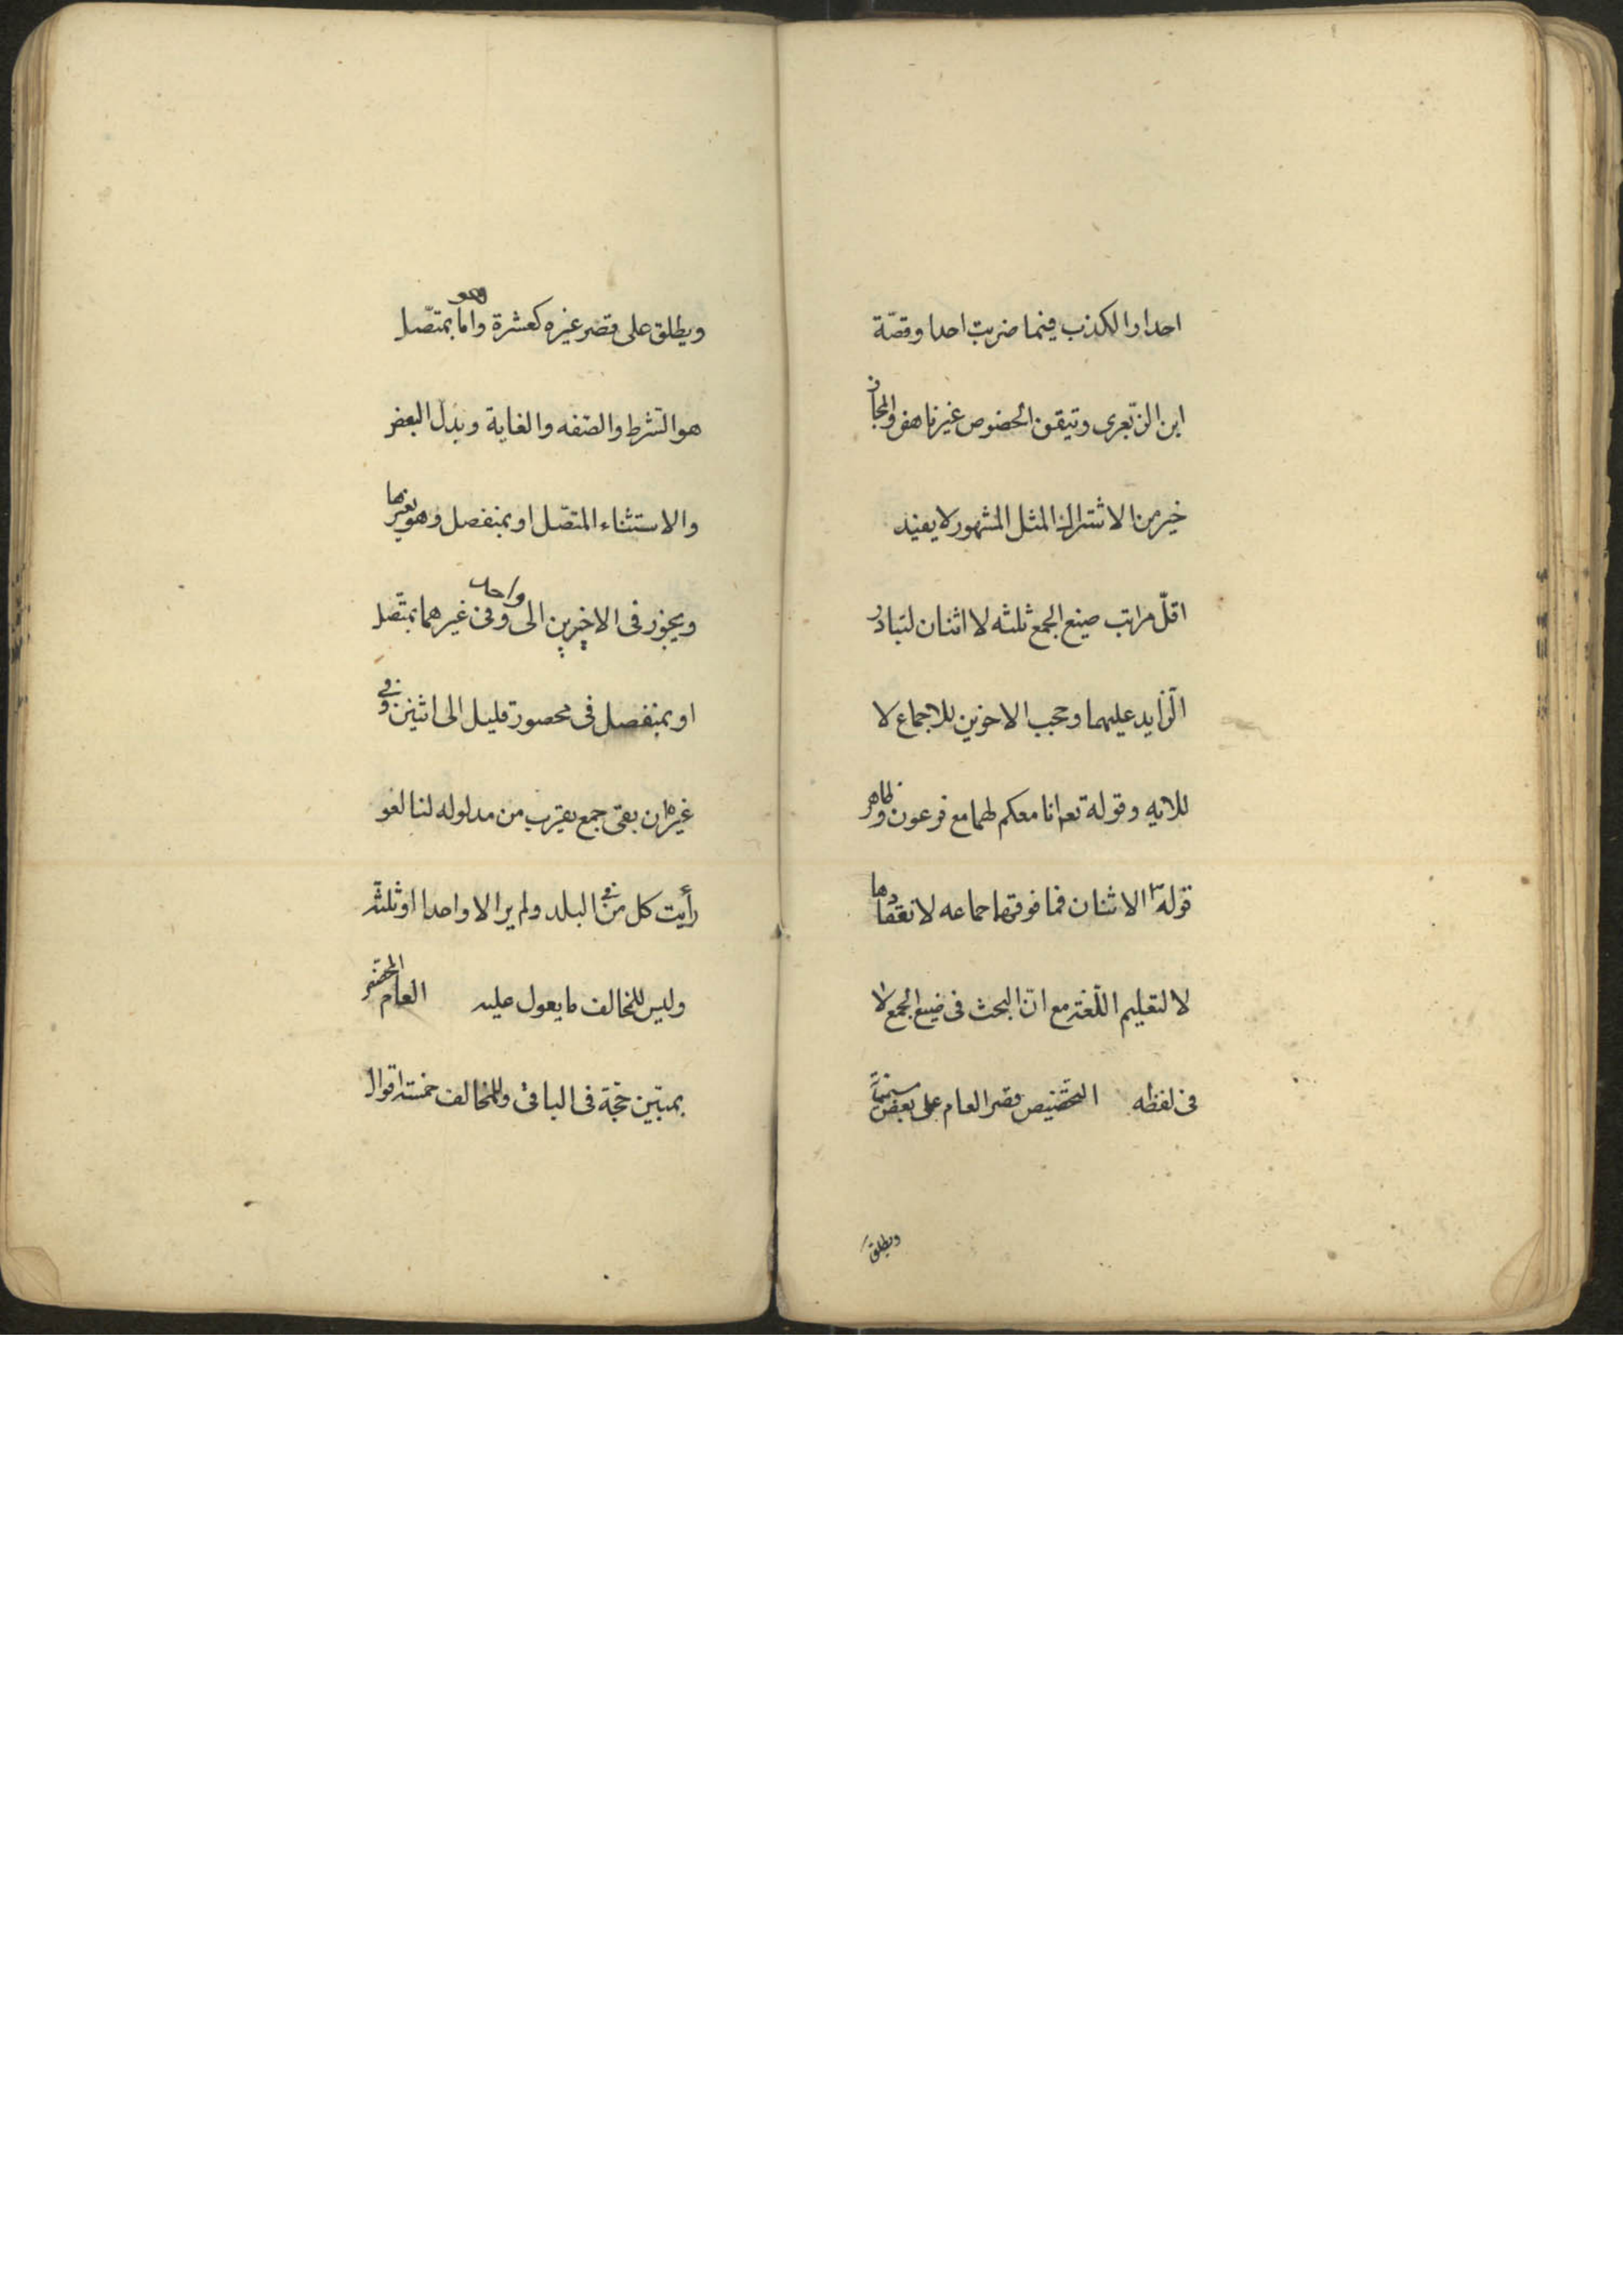 احدا والكذب فيما ضربت احدا وقصّة
ابن الزّبعرى وتيقن الخصوص غير ناهض والمجاز
خير من الاشتراك المثل المشهور لا يفيد
اقلّ مراتب صيغ الجمع ثلثه لا اثنان لتبادر
الزّايد عليهما وحجب الاخوين للاجماع لا
للايه وقوله تعـ انا معكم لهما مع فرعون وظاهر
قوله ؐ الاثنان فما فوقهما جماعه لانعقادها
لا لتعليم اللّغة مع انّ البحث فى صيغ الجمع لا
فى لفظه التخصيص قصر العام على بعض مسمياته
ويطلق
ويطلق على قصر غيره كعشرة وهو اما بمتّصل
هو الشرط والصّفه والغاية وبدل البعض
والاستثناء المتصّل او بمنفصل وهو بغيرها
ويجوز فى الاخيرين الى واحد وفى غيرهما بمتّصل
او بمنفصل فى محصور قليل الى اثنين وفى
غيرها ان بقى جمع يقرب من مدلوله لنا لغو
رأيت كل من فى البلد ولم ير الا واحدا او ثلثة
وليس للمخالف ما يعول عليه العام المخصّص
بمبيّن حجّة فى الباقى وللمخالف خمسة اقوال